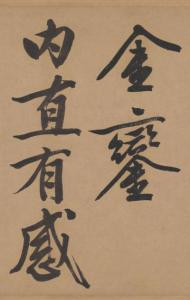 金鑾
内直有感